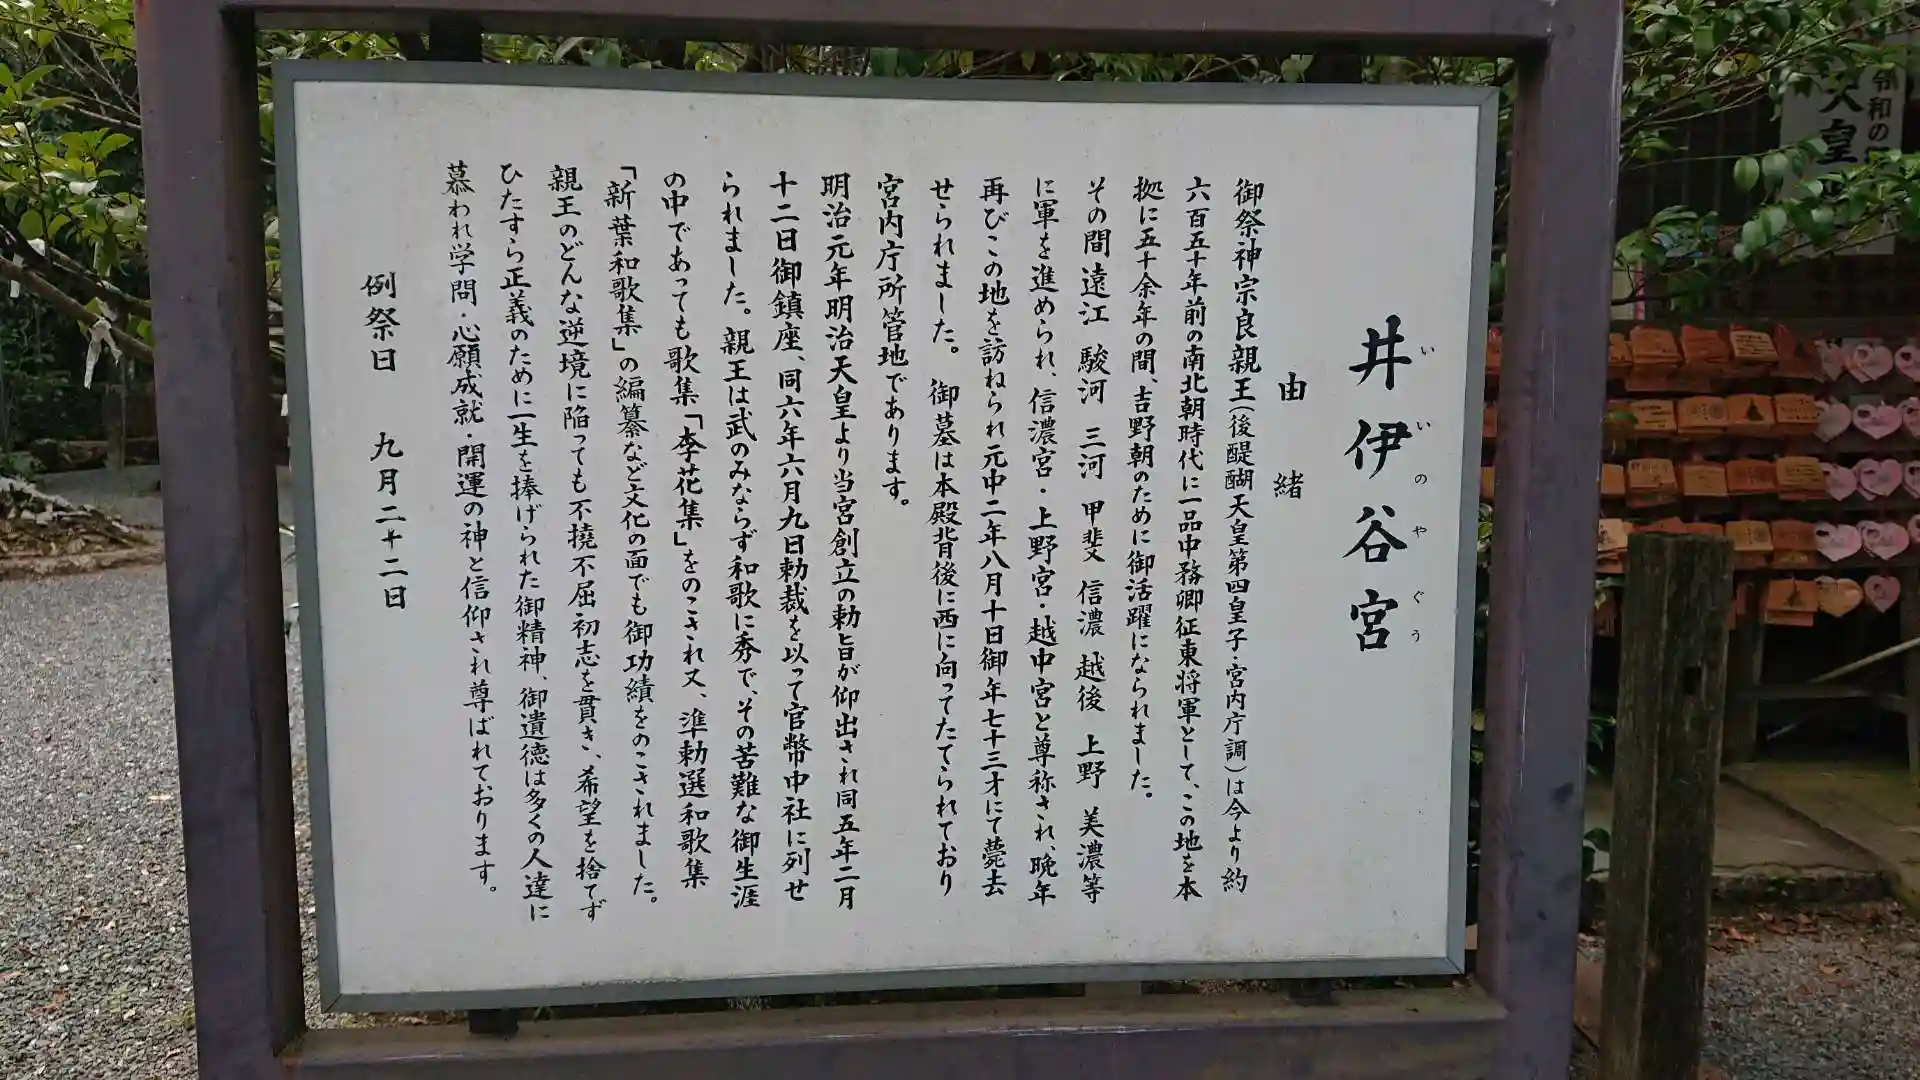 井伊谷宮
いいのやぐう
由緒
御祭神宗良親王(後醍醐天皇第四皇子・宮内庁調)は今より約
六百五十年前の南北朝時代に一品中務卿征東将軍として、この地を本
拠に五十余年の間、吉野朝のために御活躍になられました。
その間遠江 駿河 三河 甲斐 信濃 越後 上野 美濃等
に軍を進められ、信濃宮・上野宮・越中宮と尊称され、晩年
再びこの地を訪ねられ元中二年八月十日御年七十三才にて薨去
せられました。御墓は本殿背後に西に向ってたてられており
宮内庁所管地であります。
明治元年明治天皇より当宮創立の勅旨が仰出され同五年二月
十二日御鎮座、同六年六月九日勅裁を以って官幣中社に列せ
られました。親王は武のみならず和歌に秀で、その苦難な御生涯
の中であっても歌集「李花集」をのこされ又、準勅選和歌集
「新葉和歌集」の編纂など文化の面でも御功績をのこされました。
親王のどんな逆境に陥っても不撓不屈初志を貫き、希望を捨てず
ひたすら正義のために一生を捧げられた御精神、御遺徳は多くの人達に
慕われ学問・心願成就・開運の神と信仰され尊ばれております。
例祭日 九月二十二日
令和の
天皇